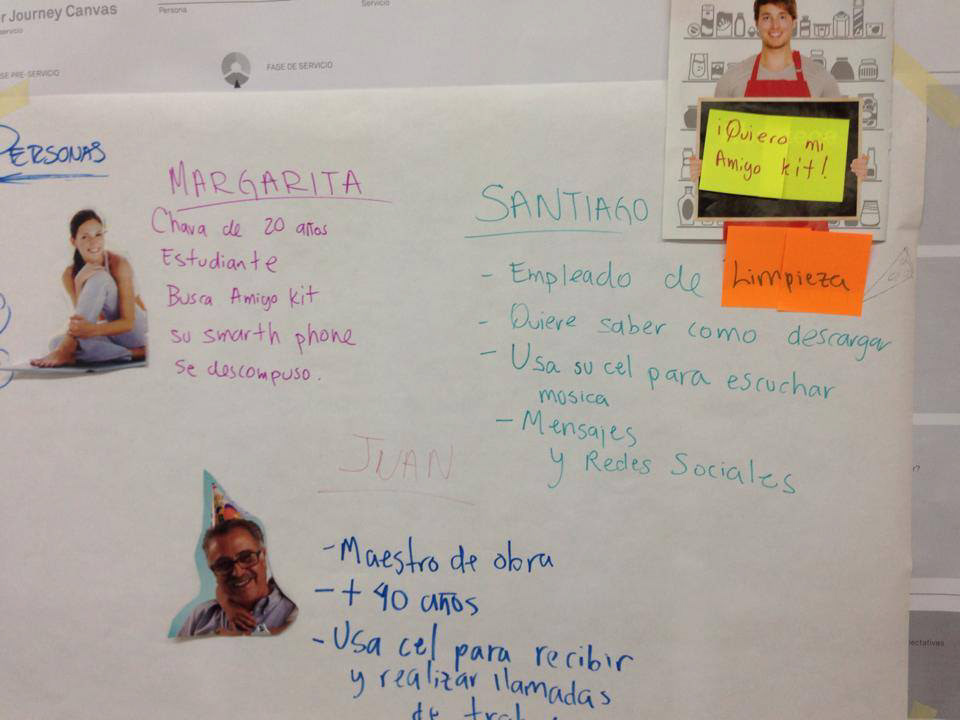 r Journey Canvas
Persona
Servicio
servicio
SE PRE-SERVICIO
FASE DE SERVICIO
PERSONAS
MARGARITA
Chava de 20 años
Estudiante
Busca Amigo kit
su smarth phone
se descompuso.
¡Quiero mi
Amigo kit!
SANTIAGO
- Empleado de Limpieza
- Quiere saber como descargar
- Usa su cel para escuchar
mosica
- Mensajes
y Redes Sociales
JUAN
- Maestro de obra
- + 40 años
- Usa cel para recibir
y realizar llamadas
de trab
ectativas